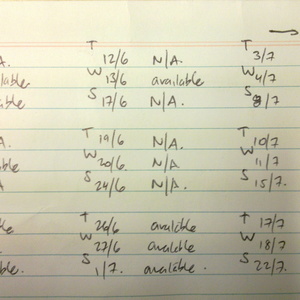 A. T 12/6 N/A. T 3/7
ilable W 13/6 available W 4/7
able S 17/6 N/A. S 8/7
A. T 19/6 N/A. T 10/7
able W 20/6 N/A W 11/7
A S 24/6 N/A. S 15/7
le T 26/6 available T 17/7
W 27/6 available W 18/7
ble. S 1/7. available. S 22/7